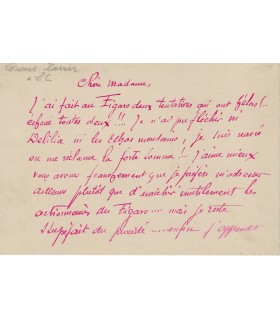 Chère Madame,
J'ai fait au Figaro deux tentatives qui ont
échoué toutes deux !!! Je n'ai pu fléchir ni
Delilia ni les Echos mondains, je suis navré
on me réclame la forte somme !! J'aime mieux
vous avouer franchement que je préfère m'adresser
ailleurs plutôt que d'enrichir inutilement les
actionnaires du Figaro... mais je reste
stupéfait du procédé .... enfin j'apprends